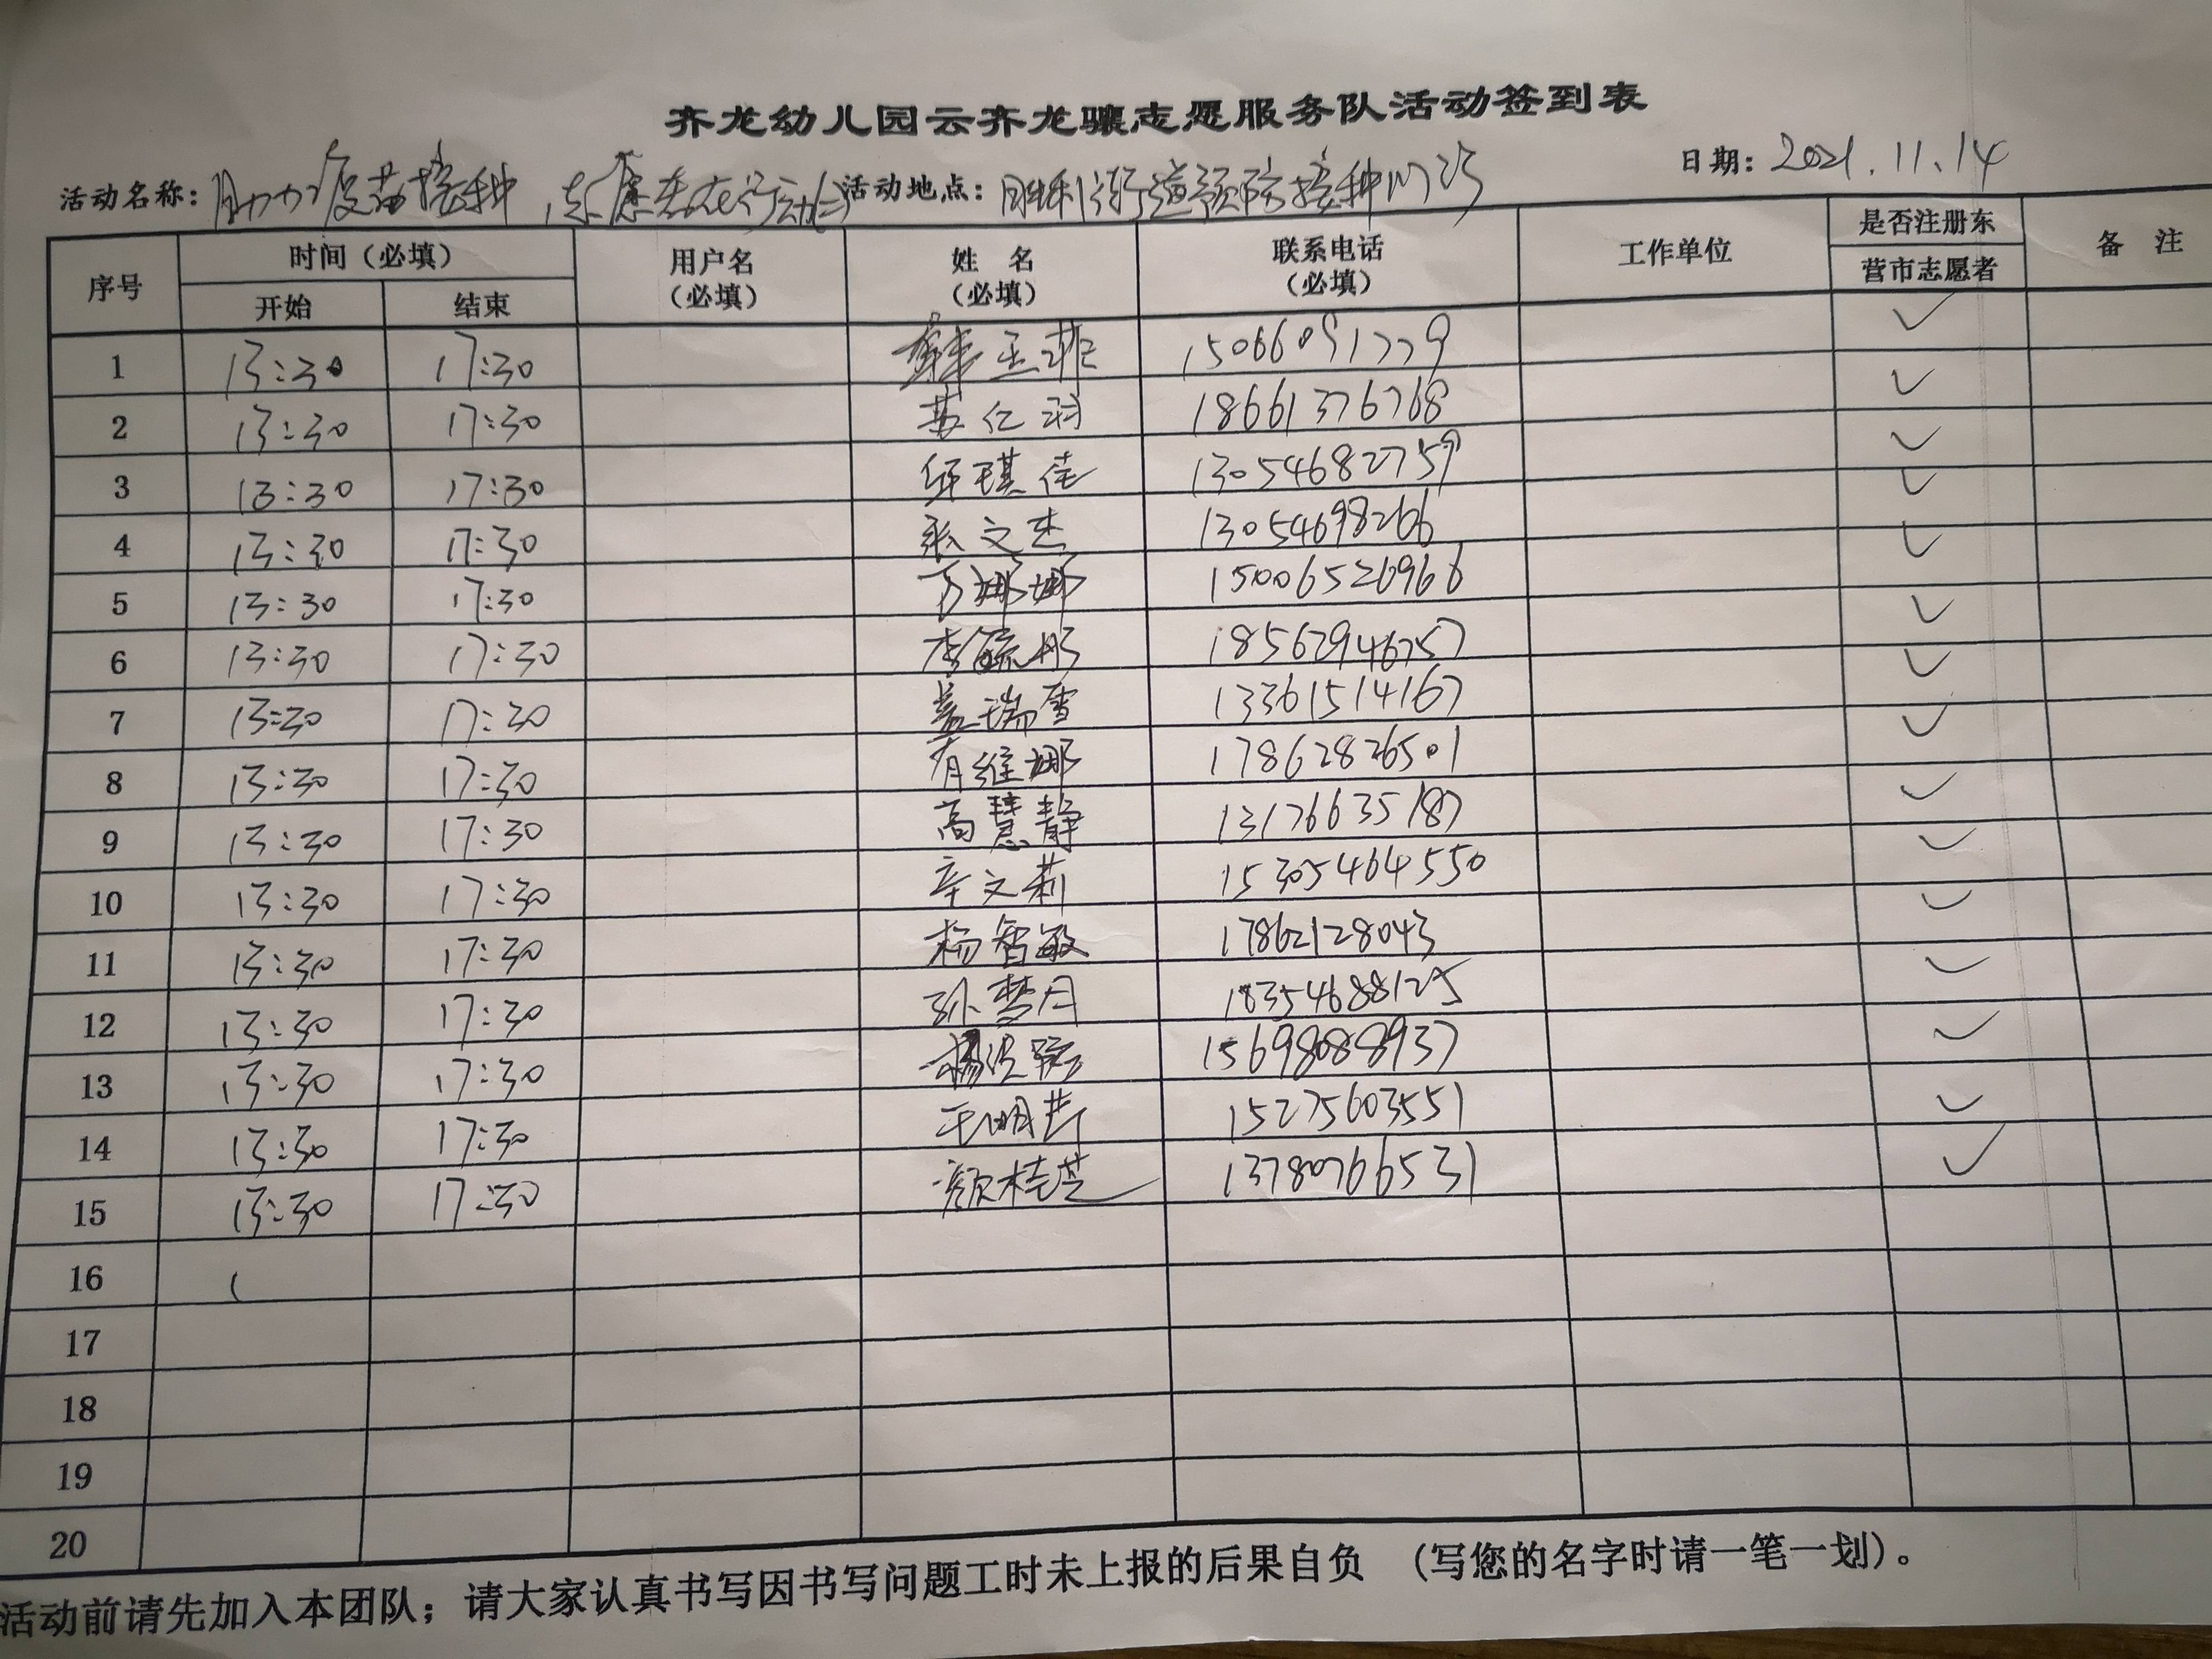 齐龙幼儿园云齐龙骧志愿服务队活动签到表
活动名称：助力疫苗接种，志愿者在行动 活动地点：胜利街道预防接种门诊 日期：2021.11.14
序号 时间（必填） 用户名（必填） 姓 名（必填） 联系电话（必填） 工作单位 是否注册东营市志愿者 备 注
开始 结束
1 13:30 17:30 玉菲 15066091779 ✓
2 13:30 17:30 苏仁羽 18661376768 ✓
3 13:30 17:30 琪佳 13054682759 ✓
4 13:30 17:30 张文杰 13054698266 ✓
5 13:30 17:30 万娜娜 15006526966 ✓
6 13:30 17:30 李毓彤 18562946757 ✓
7 13:30 17:30 盖瑞雪 13361514167 ✓
8 13:30 17:30 有维娜 17862826501 ✓
9 13:30 17:30 高慧静 13176635187 ✓
10 13:30 17:30 辛文莉 15305464550 ✓
11 13:30 17:30 杨智敏 17862128043 ✓
12 13:30 17:30 孙梦月 18354688125 ✓
13 13:30 17:30 杨 15698088937 ✓
14 13:30 17:30 王明芹 15275603551 ✓
15 13:30 17:30 颜桂芝 13780766531 ✓
16
17
18
19
20
活动前请先加入本团队；请大家认真书写因书写问题工时未上报的后果自负 （写您的名字时请一笔一划）。